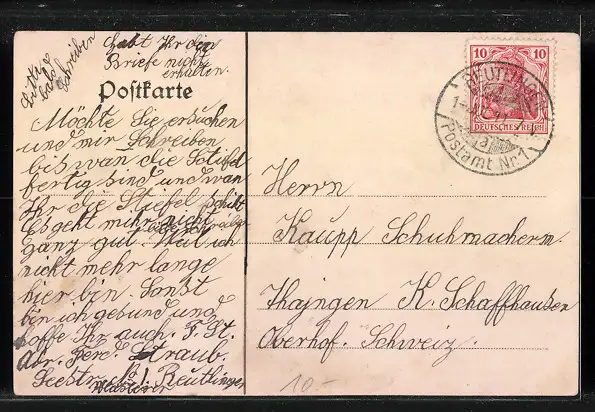 Bitte
bald
schreiben
Habt Ihr den
Briefe nicht
erhalten.
Postkarte
Möchte Sie ersuchen
und mir Schreiben
bis wan die Stiefel
fertig sind und wan
Ihr die Stiefel schikt
Es geht mir nicht
ganz gut. Weil ich
nicht mehr lange
hier bin. Sonst
bin ich gesund und
hoffe Ihr auch. F. St.
Abr. Ferd. Straub.
Seestr. 1 Reutlingen
10 10
DEUTSCHES REICH
REUTLINGEN
Postamt Nr 1
Herrn
Kaupp Schuhmacherm.
Thajngen K. Schaffhausen
Oberhof. Schweiz.
10.-